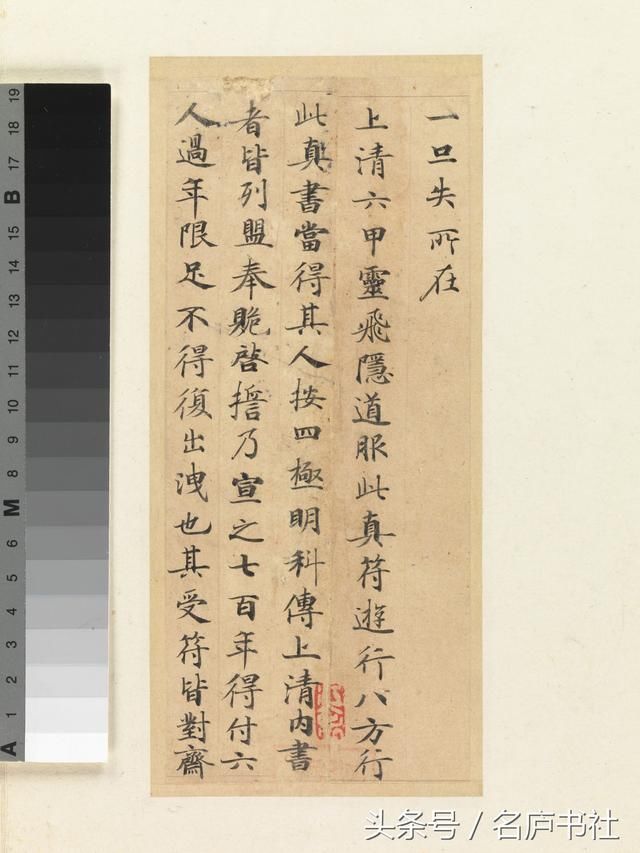 一旦失所在
上清六甲靈飛隱道服此真符遊行八方行
此真書當得其人按四極明科傳上清內書
者皆列盟奉贄啓誓乃宣之七百年得付六
人過年限足不得復出洩也其受符皆對齋
A 1 2 3 4 5 6 M 8 9 10 11 12 13 14 15 B 17 18 19
头条号 / 名庐书社